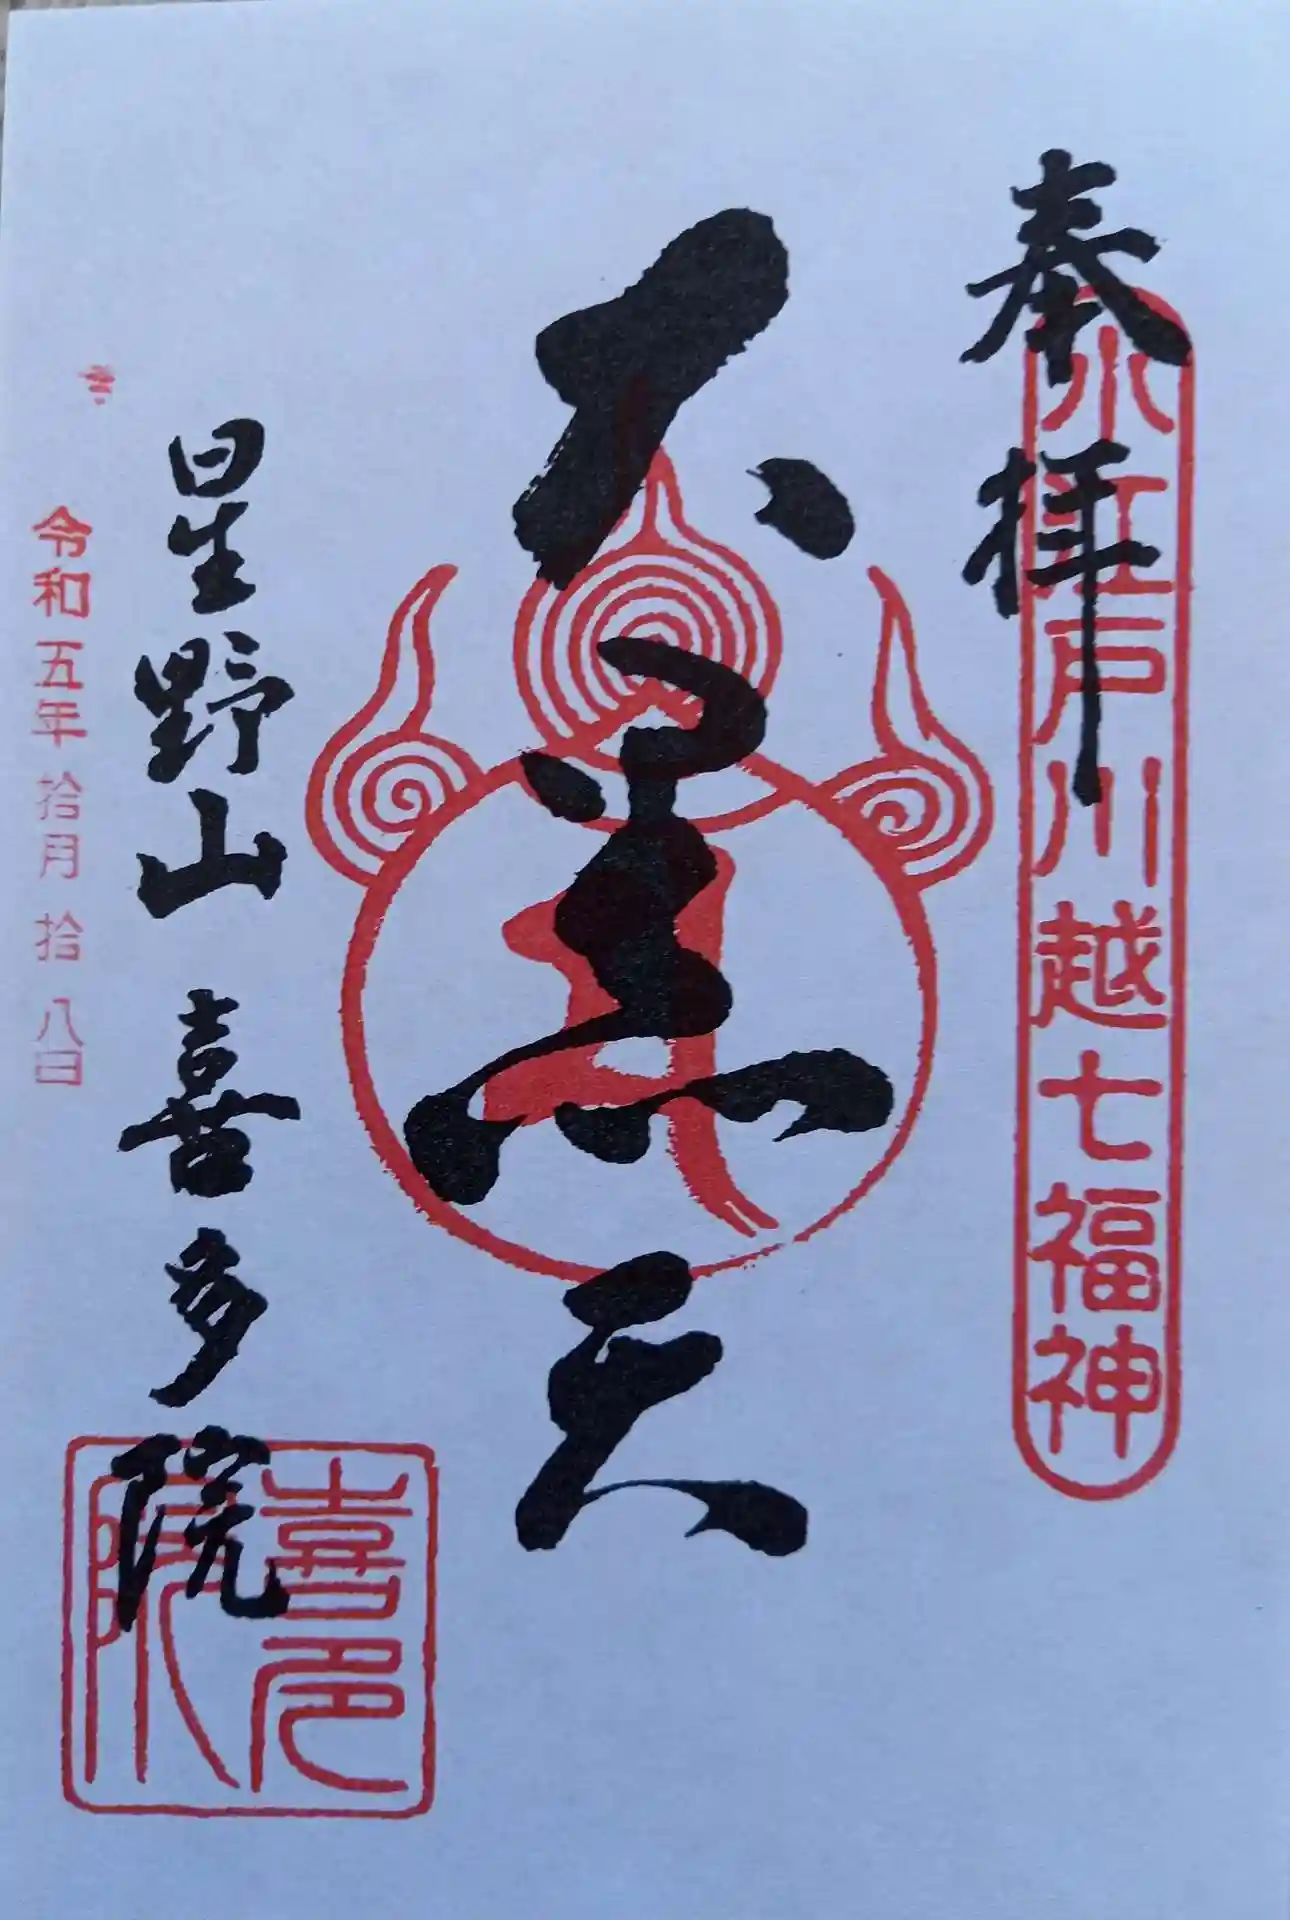 奉拝
小江戸川越七福神
大黒天
星野山 喜多院
喜多院
令和五年拾月拾八日